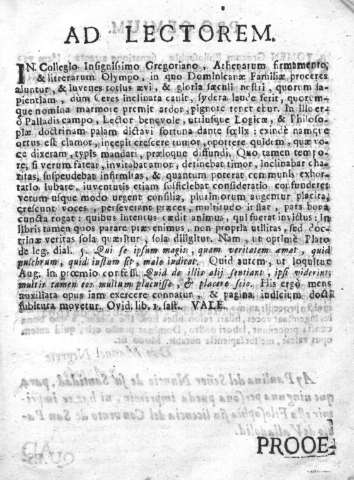 AD LECTOREM.
IN Collegio Insignissimo Gregoriano, Athenarum firmamento,
& literarum Olympo, in quo Dominicanæ Familiæ proceres
aluntur, & iuvenes totius ævi, & gloria sæculi nostri, quorum sa-
pientiam, dùm Ceres inclinata caulè, sydera laude ferit, quorum-
que nomina marmore premit ardor, pignore teret etur. In illo er-
gò Palladis campo, Lector benevole, utriusque Logicæ, & Philoso-
phiæ doctrinam palam dictavi fortuna dante
ortus est clamor, inquit crescere tumor, oportere quidem, quæ vo-
ce dixeram, typis mandari, præloque diffundi. Quo tamen tempo-
re, si verum fatear, invitabat amor, detinebat timor, inclinabat cha-
ritas, suspendebat infirmitas, & quantum poterat communis exhor-
tatio iubare, iuventutis etiam sufficiebat consideratio confunderet
verùm usque modo urgent consilia, plurimorum augentur placita,
crescunt voces, perseverant præces, multitudo instat, pars bona
cuncta rogat: quibus intentus cædit animus, qui fuerat invictus: In
libris tamen quos parare præ enimus, non propria utilitas, sed doc-
trinæ veritas sola quæritur, sola diligitur. Nam, ut optimè Plato
de leg. dial. 5. Qui se ipsum magis, quam veritatem amat, quid
pulchrum, quid iustum sit, malè iudicat. Quid autem, ut loquitur
Aug. in proœmio confess. Quid de illis alij sentiant, ipsi viderint:
multis tamen eos multum placuisse, & placere scio. His ergò mens
auxiliata opus iam exercere connatur, & pagina iudicium docti
subitura movetur. Ovid. lib. 1. fast. VALE.
PROOE-